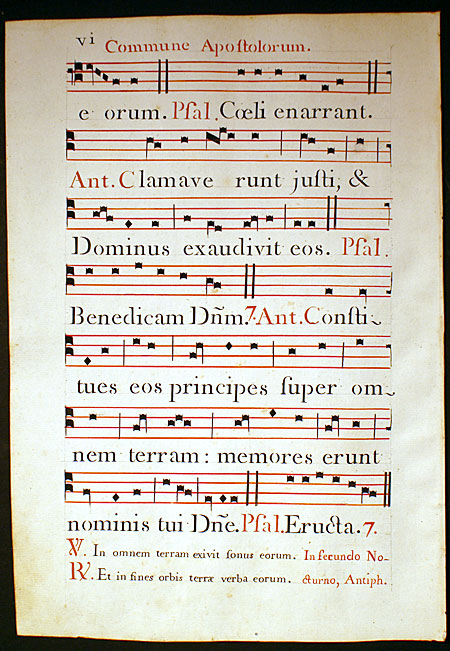 vi Commune Apoſtolorum.
e orum. Pſal. Cœli enarrant.
Ant. Clamave runt juſti, &
Dominus exaudivit eos. Pſal.
Benedicam Dñm. 7. Ant. Conſti-
tues eos principes ſuper om-
nem terram: memores erunt
nominis tui Dñe. Pſal. Eructa. 7.
℣. In omnem terram exivit ſonus eorum. In ſecundo No-
℟. Et in fines orbis terræ verba eorum. cturno, Antiph.